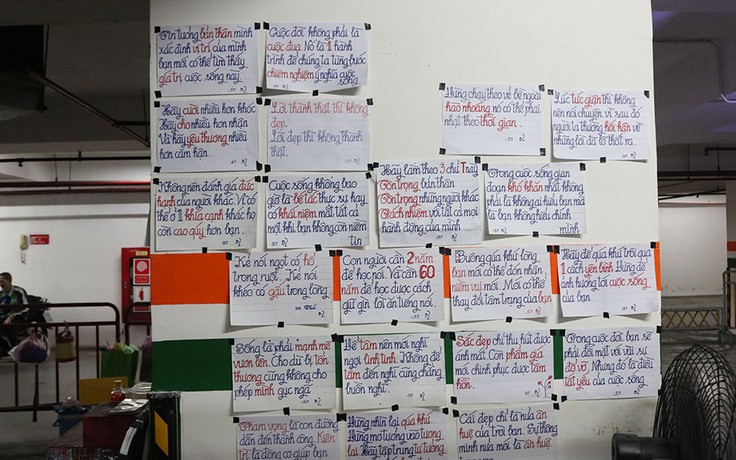 Tin tưởng bản thân mình
xác định vị trí của mình
bạn mới có thể tìm thấy
giá trị cuộc sống này.
Cuộc đời không phải là
cuộc đua. Nó là 1 hành
trình để chúng ta từng bước
chiêm nghiệm ý nghĩa cuộc
sống.
Đừng chạy theo vẻ bề ngoài
hào nhoáng nó có thể phai
nhạt theo thời gian.
Lúc tức giận thì không
nên nói chuyện. Vì sau đó
người ta thường hối hận về
những lời đã lỡ thốt ra.
Hãy cười nhiều hơn khóc
Hãy cho nhiều hơn nhận
Và hãy yêu thương nhiều
hơn căm hận.
Lời thành thật thì không
đẹp.
Lời đẹp thì không thành
thật.
Không nên đánh giá đức
hạnh của người khác. Vì có
thể ở 1 khía cạnh khác họ
còn cao quý hơn bạn.
Cuộc sống không bao
giờ là bế tắc thực sự hay
có khái niệm mất tất cả
một khi bạn không còn niềm
tin
Hãy làm theo 3 chữ T này
Tôn trọng bản thân
Tôn trọng những người khác
Trách nhiệm với tất cả mọi
hành động của mình
Trong cuộc sống gian
đoạn khó khăn nhất không
phải là không ai hiểu bạn mà
là bạn không hiểu chính
mình
Kẻ nói ngọt có hố
trong ruột. Kẻ nói
khéo có gấu trong lòng
Con người cần 2 năm
để học nói. Và cần 60
năm để học được cách
giữ gìn lời ăn tiếng nói.
Buông quá khứ long
bạn mới có thể đón nhận
niềm vui mới. Mới có thể
thay đổi tâm trạng của bạn
Hãy để quá khứ trôi qua
1 cách yên bình. Đừng để
ảnh hưởng tới cuộc sống
của bạn.
Sống là phải mạnh mẽ
vươn lên. Cho dù bị tổn
thương cũng không cho
phép mình gục ngã.
Để tâm nên mới nghĩ
ngợi linh tinh. Không để
tâm đến nghĩ cũng chẳng
buồn nghĩ.
Sắc đẹp chỉ thu hút được
ánh mắt. Còn phẩm giá
mới chinh phục được tâm
hồn.
Trong cuộc đời, bạn sẽ
phải đối mặt với vài sự
đổ vỡ. Nhưng đó là điều
tất yếu của cuộc sống.
Tham vọng là con đường
dẫn đến thành công. Kiên
trì là động cơ giúp bạn
Đừng nhìn lại quá khứ
Đừng mơ tưởng vào tương
lai. Hãy tập trung tư tưởng
Cái đẹp chỉ là nửa ân
huệ của trời ban. Sự thông
minh nửa mới là ân huệ